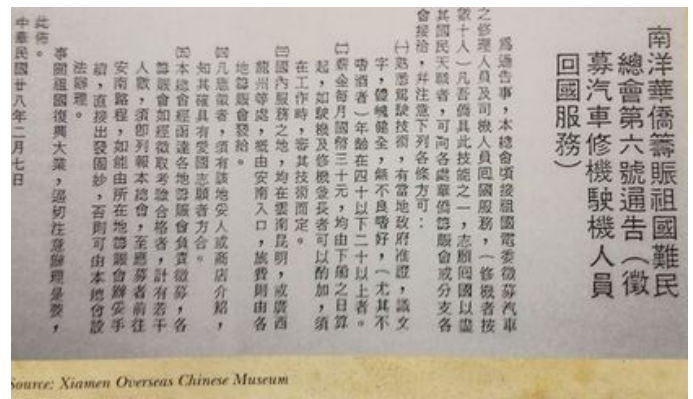 南洋華僑籌賑祖國難民
總會第六號通告（徵
募汽車修機駛機人員
回國服務）
為通告事，本總會頃接祖國電委徵募汽車
之修理人員及司機人員回國服務，（修機者按
數十人）凡吾僑具此技能之一，志願回國以盡
其國民天職者，可向各處華僑籌賑會或分支各
會接洽，幷注意下列各條方可：
㈠熟悉駕駛技術，有當地政府准證，識文
字，體魄健全，無不良嗜好，（尤其不
嗜酒者）年齡在四十以下二十以上者。
㈡薪金每月國幣三十元，均由下船之日算
起，如駛機及修機兼長者可以酌加，須
在工作時，審其技術而定。
㈢國內服務之地，均在雲南昆明，或廣西
龍州等處，概由安南入口，旅費則由各
地籌賑會發給。
㈣凡應徵者，須有該地妥人或商店介紹，
知其確具有愛國志願者方合。
㈤本總會經函達各地籌賑會負責徵募，各
籌賑會如經徵取考驗合格者，計有若干
人數，須即列報本總會，至應募者前往
安南路程，如能由所在地籌賑會辦妥手
續，直接出發固妙，否則可由本總會設
法辦理。
事關祖國復興大業，迫切注意辦理是要，
此佈。
中華民國廿八年二月七日
Source: Xiamen Overseas Chinese Museum